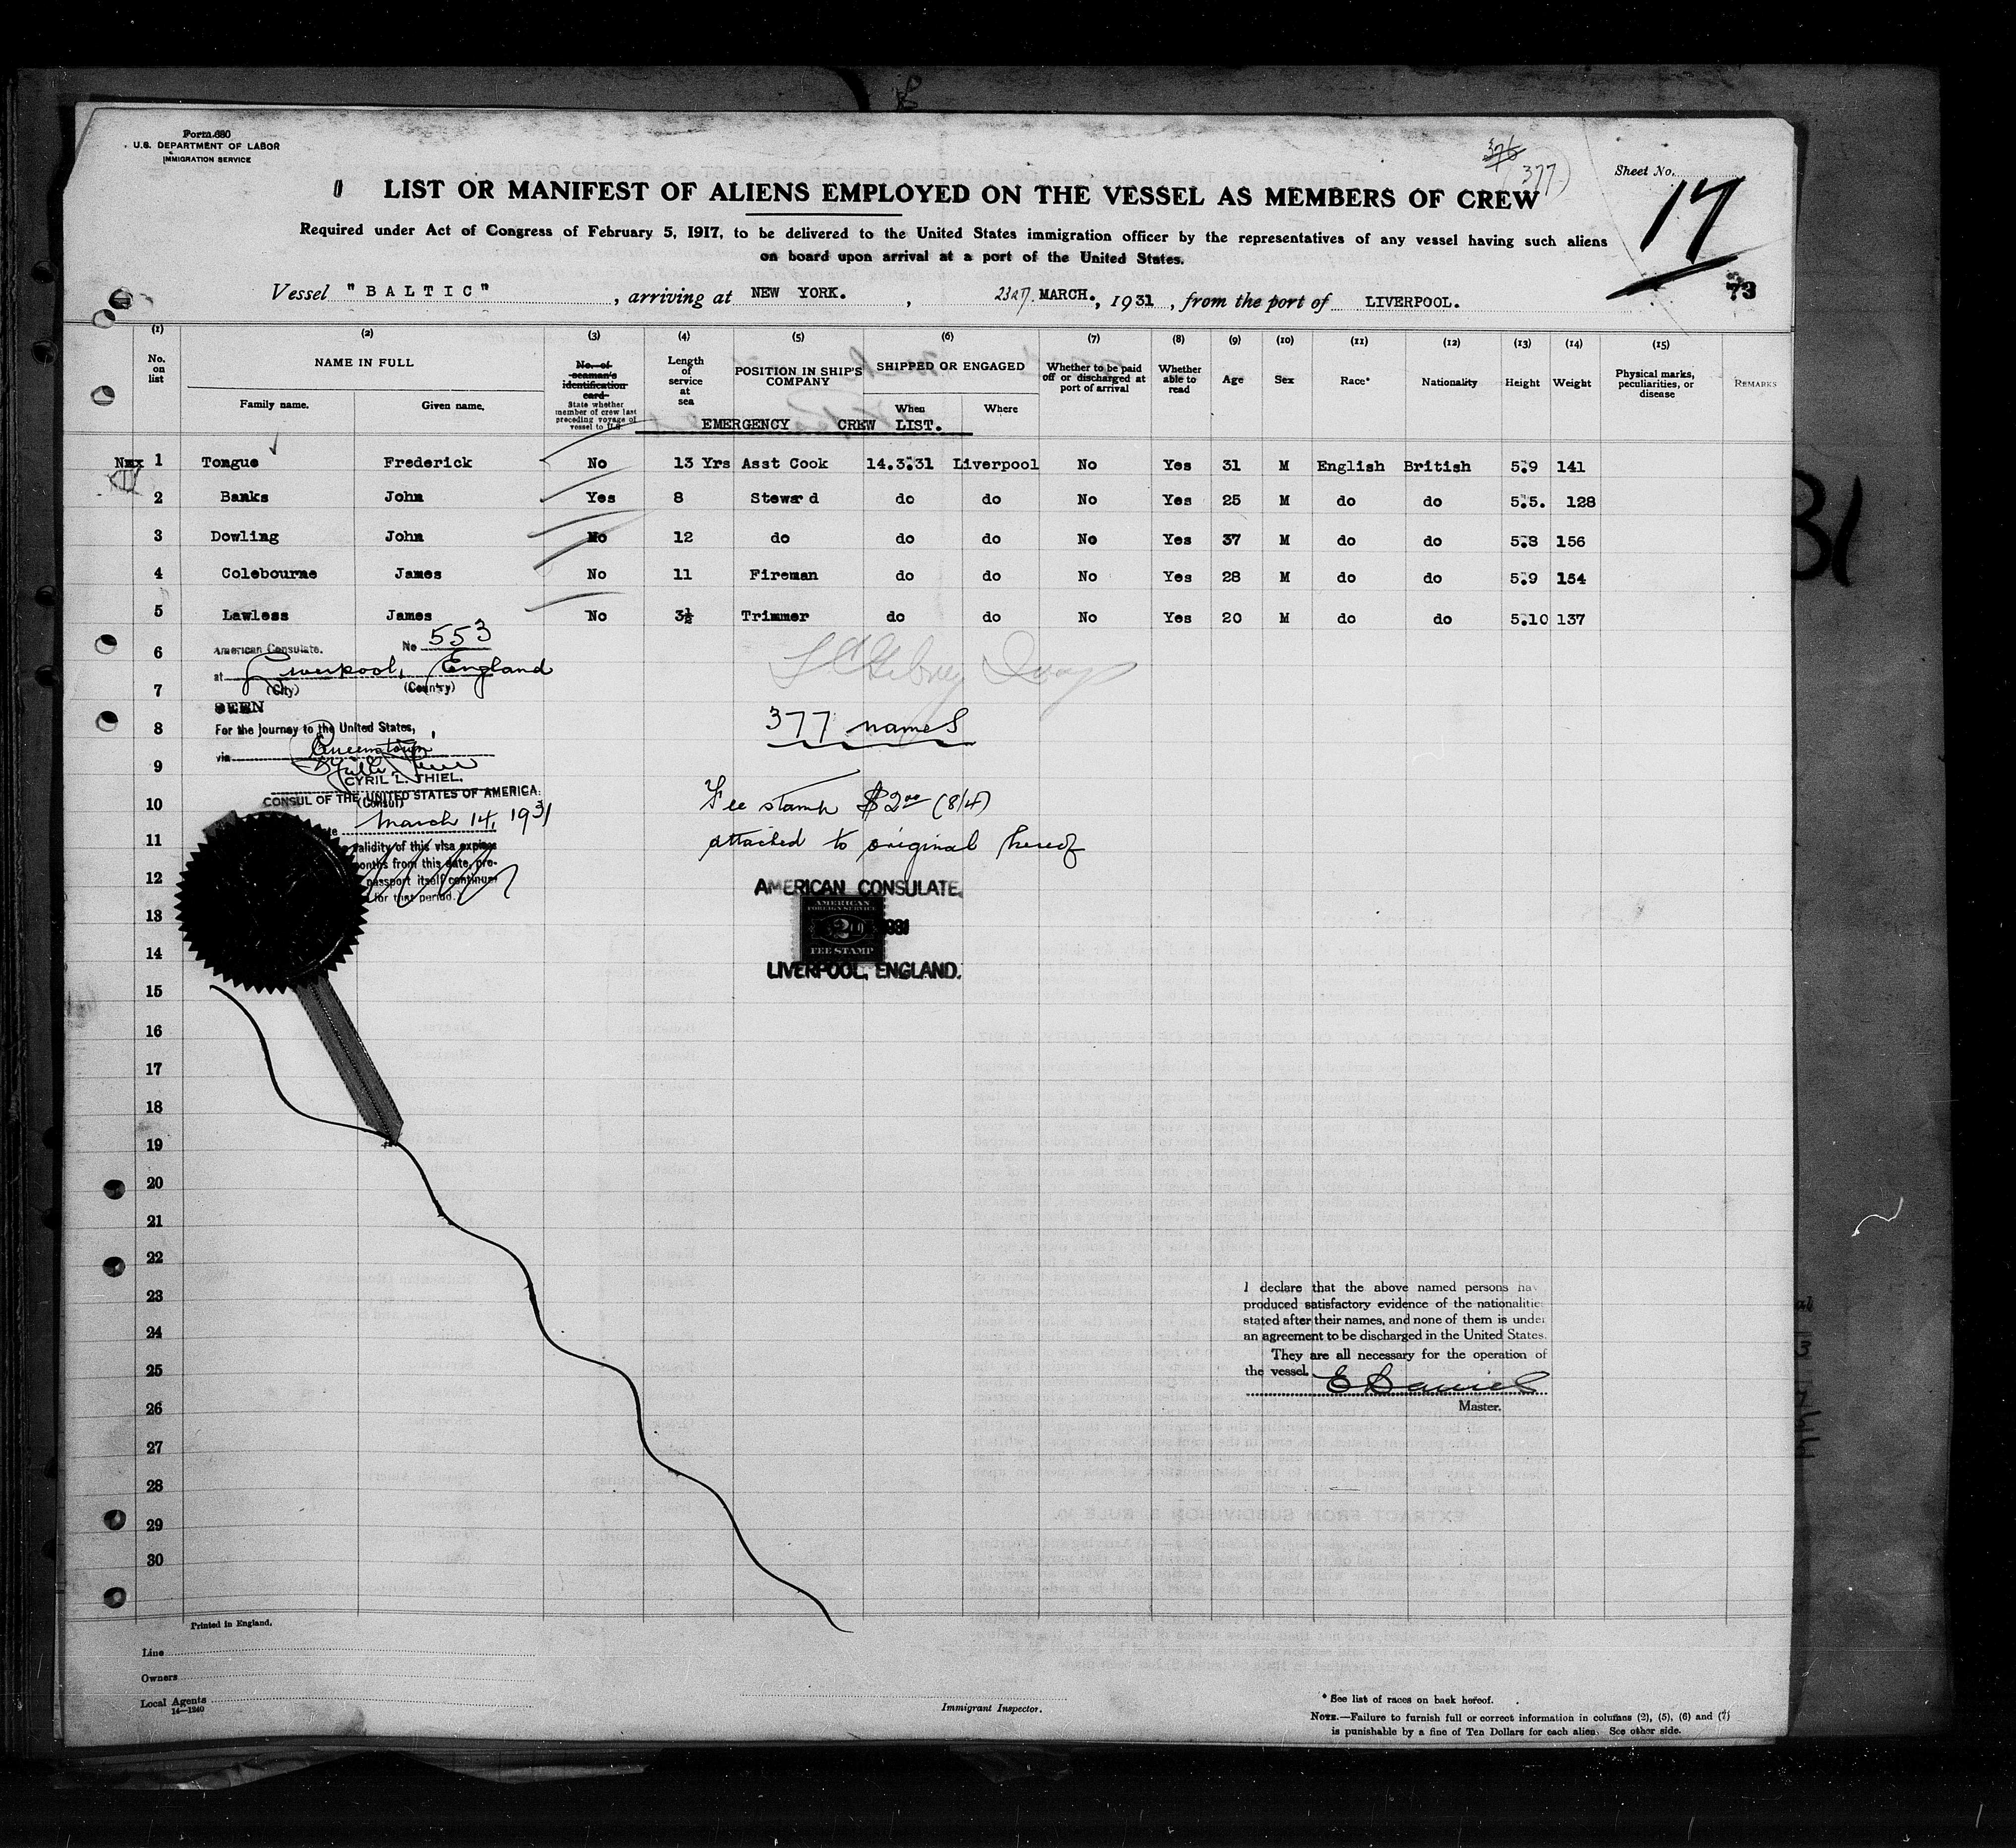 Form 680
U.S. DEPARTMENT OF LABOR
IMMIGRATION SERVICE
376
377
Sheet No.
17
LIST OR MANIFEST OF ALIENS EMPLOYED ON THE VESSEL AS MEMBERS OF CREW
Required under Act of Congress of February 5, 1917, to be delivered to the United States immigration officer by the representatives of any vessel having such aliens
on board upon arrival at a port of the United States.
73
Vessel "BALTIC", arriving at NEW YORK., MARCH., 1931, from the port of LIVERPOOL.
(1) (2) (3) (4) (5) (6) (7) (8) (9) (10) (11) (12) (13) (14) (15)
No. on list
NAME IN FULL
Family name. Given name.
No. of seaman's identification card
State whether member of crew last preceding voyage of vessel to U.S
Length of service at sea
POSITION IN SHIP'S COMPANY
SHIPPED OR ENGAGED
When Where
Whether to be paid off or discharged at port of arrival
Whether able to read
Age
Sex
Race*
Nationality
Height
Weight
Physical marks, peculiarities, or disease
REMARKS
EMERGENCY CREW LIST.
1 Tongue Frederick No 13 Yrs Asst Cook 14.3.31 Liverpool No Yes 31 M English British 5.9 141
2 Banks John Yes 8 Steward do do No Yes 25 M do do 5.5. 128
3 Dowling John No 12 do do do No Yes 37 M do do 5.8 156
4 Colebourne James No 11 Fireman do do No Yes 28 M do do 5.9 154
5 Lawless James No 3½ Trimmer do do No Yes 20 M do do 5.10 137
6
7
8
9
10
11
12
13
14
15
16
17
18
19
20
21
22
23
24
25
26
27
28
29
30
American Consulate. No 553
at Liverpool, England
(City) (Country)
SEEN
For the journey to the United States,
via Queenstown
CYRIL L. THIEL.
CONSUL OF THE UNITED STATES OF AMERICA.
(Consul)
March 14, 1931
validity of this visa expires
months from this date, pro-
passport itself continues
for that period.
377 names
Fee stamp $2.00 (8/4)
attached to original hereof
AMERICAN CONSULATE.
AMERICAN
FOREIGN SERVICE
$2.00
FEE STAMP
1931
LIVERPOOL, ENGLAND.
I declare that the above named persons have
produced satisfactory evidence of the nationalities
stated after their names, and none of them is under
an agreement to be discharged in the United States.
They are all necessary for the operation of
the vessel. E Daniel
Master.
Printed in England.
Line
Owners
Local Agents
14—1240
Immigrant Inspector.
* See list of races on back hereof.
NOTE.—Failure to furnish full or correct information in columns (2), (5), (6) and (7)
is punishable by a fine of Ten Dollars for each alien. See other side.